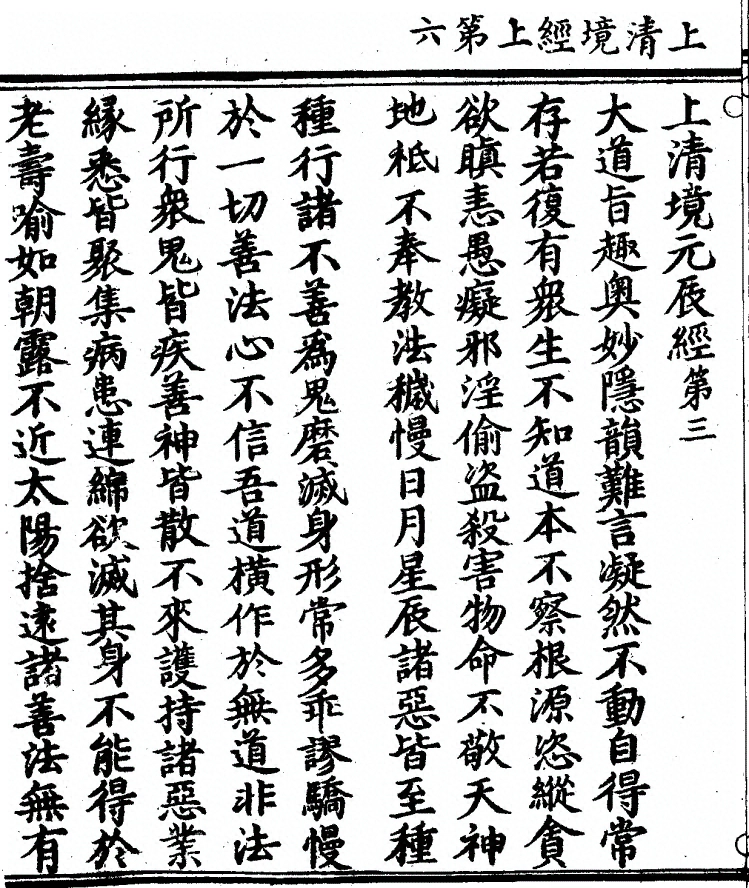 上清境經上第六
上清境元辰經第三
大道旨趣奧妙隱韻難言凝然不動自得常
存若復有衆生不知道本不察根源恣縱貪
欲瞋恚愚癡邪淫偷盜殺害物命不敬天神
地祇不奉教法穢慢日月星辰諸惡皆至種
種行諸不善爲鬼磨滅身形常多乖謬驕慢
於一切善法心不信吾道橫作於無道非法
所行衆鬼皆疾善神皆散不來護持諸惡業
緣悉皆聚集病患連綿欲滅其身不能得於
老壽喻如朝露不近太陽捨遠諸善法無有